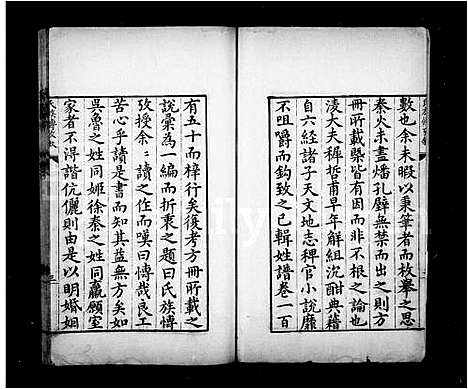 數也余未暇以秉筆者而枚舉之思
秦火未盡燔孔壁無禁而出之則方
冊所載槩皆有因而非不根之論也
淩大夫穉哲甫早年解組沉酣典籍
自六經諸子天文地志稗官小說靡
不咀嚼而鈎致之已輯姓譜卷一百
有五十而梓行矣復考方冊所載之
說彙為一編而折衷之題曰氏族博
攷授余二讀之作而嘆曰博哉良工
苦心乎讀是書而知其益無方矣如
吳魯之姓同姬徐秦之姓同嬴顧室
家者不得諧伉儷則由是以明婚姻